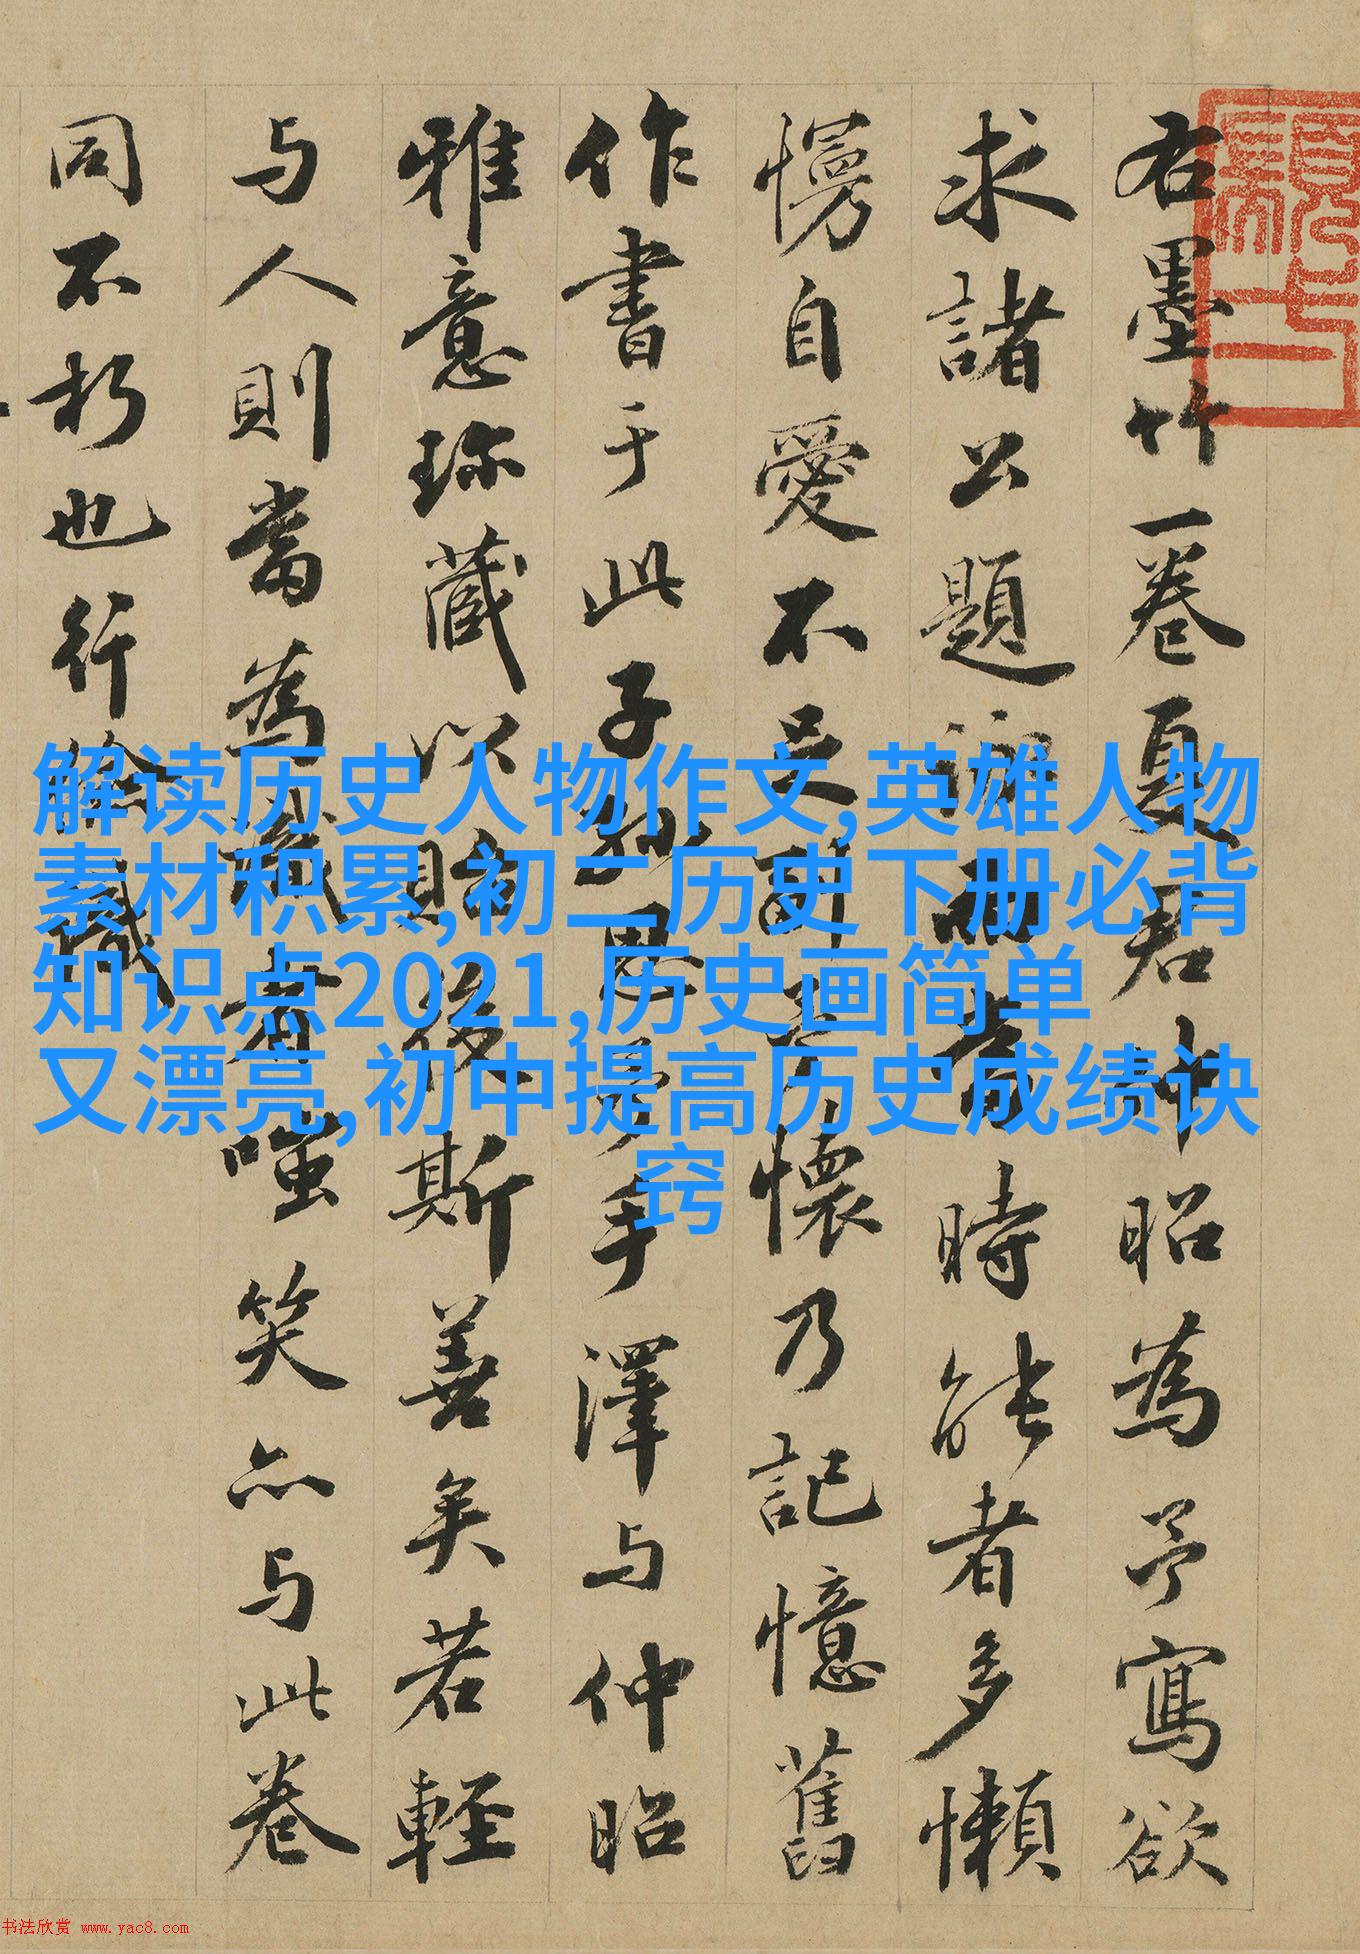 右墨竹一卷夏君仲昭為予寫欲
求諸公題時能者多懶
慢自愛不足副予懷乃記憶舊
作書于此子孫思予手澤与仲昭
雅意珍藏以貽後斯善矣若輕
与人則當為識者嗤笑亦与此卷
同不朽也行
解读历史人物作文,英雄人物
素材积累,初二历史下册必背
知识点2021,历史画简单
又漂亮,初中提高历史成绩诀
窍
书法欣赏 www.yac8.com